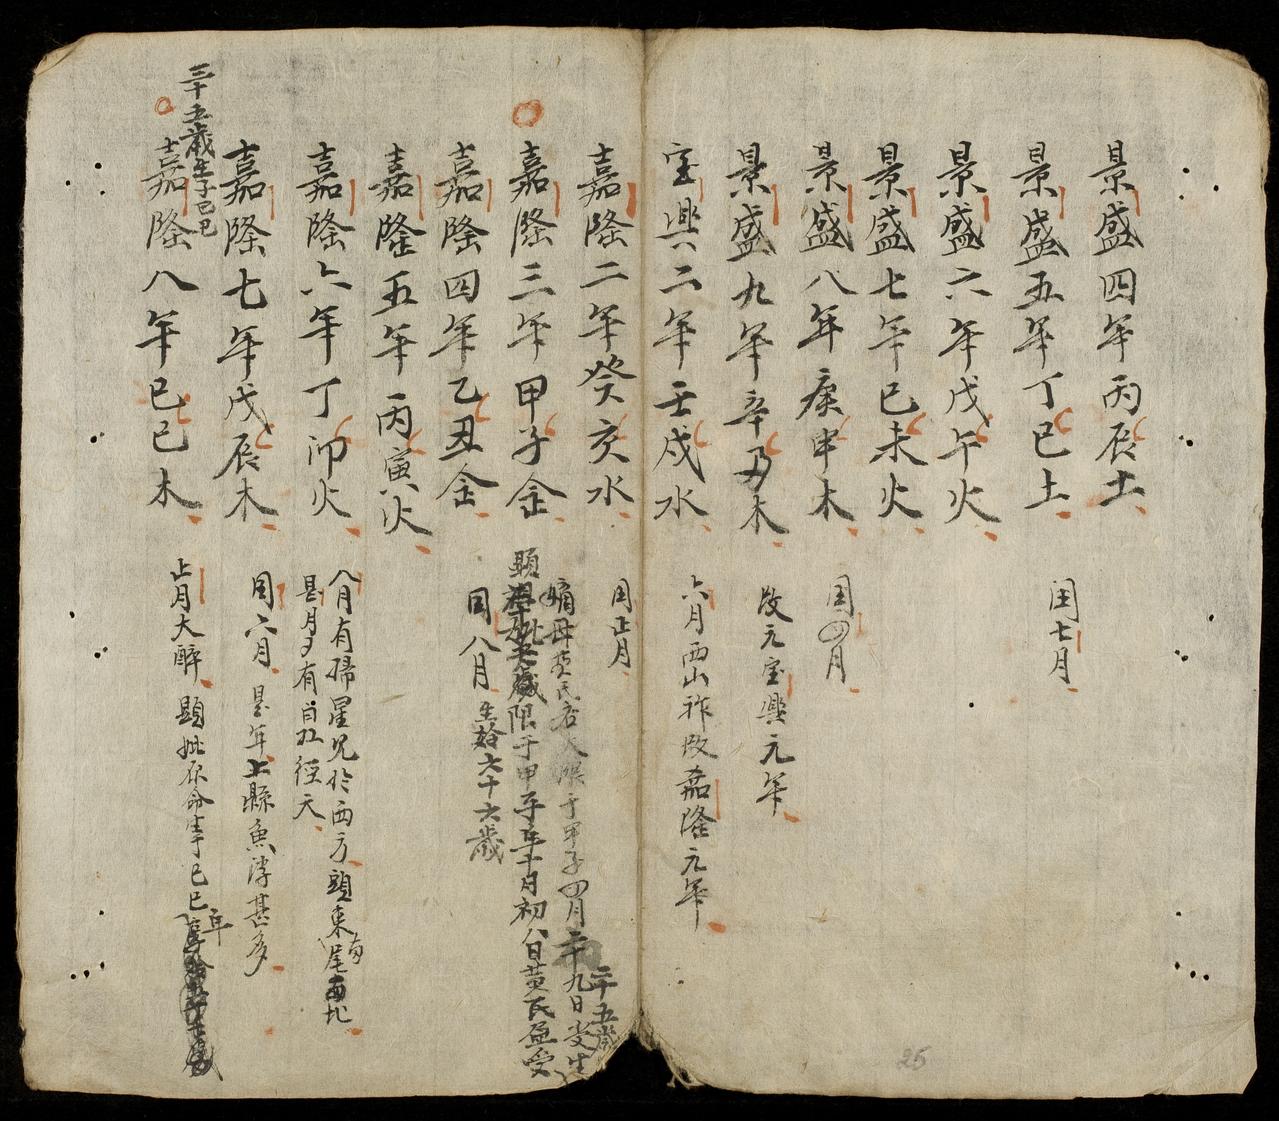 景盛四年丙辰土
景盛五年丁巳土 閏七月
景盛六年戊午火
景盛七年己未火
景盛八年庚申木 閏四月
景盛九年辛丑木 改元宝興元年
宝興二年壬戌水 六月西山祚改嘉隆元年
嘉隆二年癸亥水 閏正月
嫡母 氏 于甲子四月二十九日受生
二十五歲
嘉隆三年甲子金
限于甲子年十月初八日黄氏 受
嘉隆四年乙丑金 閏八月
生 六十六歲
嘉隆五年丙寅火
嘉隆六年丁卯火 八月有掃星見於西方頭東尾
是月 有 經天
嘉隆七年戊辰木 閏六月 是年上縣魚浮甚多
三十五歲生子己巳
嘉隆八年己巳木 正月大醉 顯妣 命生于己巳年
25